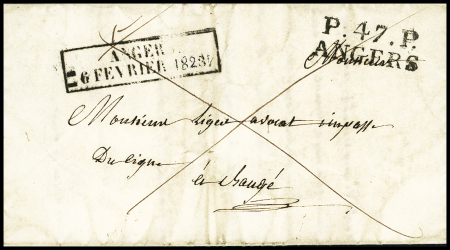 ANGERS
6 FEVRIER 1828
P. 47. P.
ANGERS
Monsieur
Monsieur Liger avocat impasse
Du ligne
à Baugé